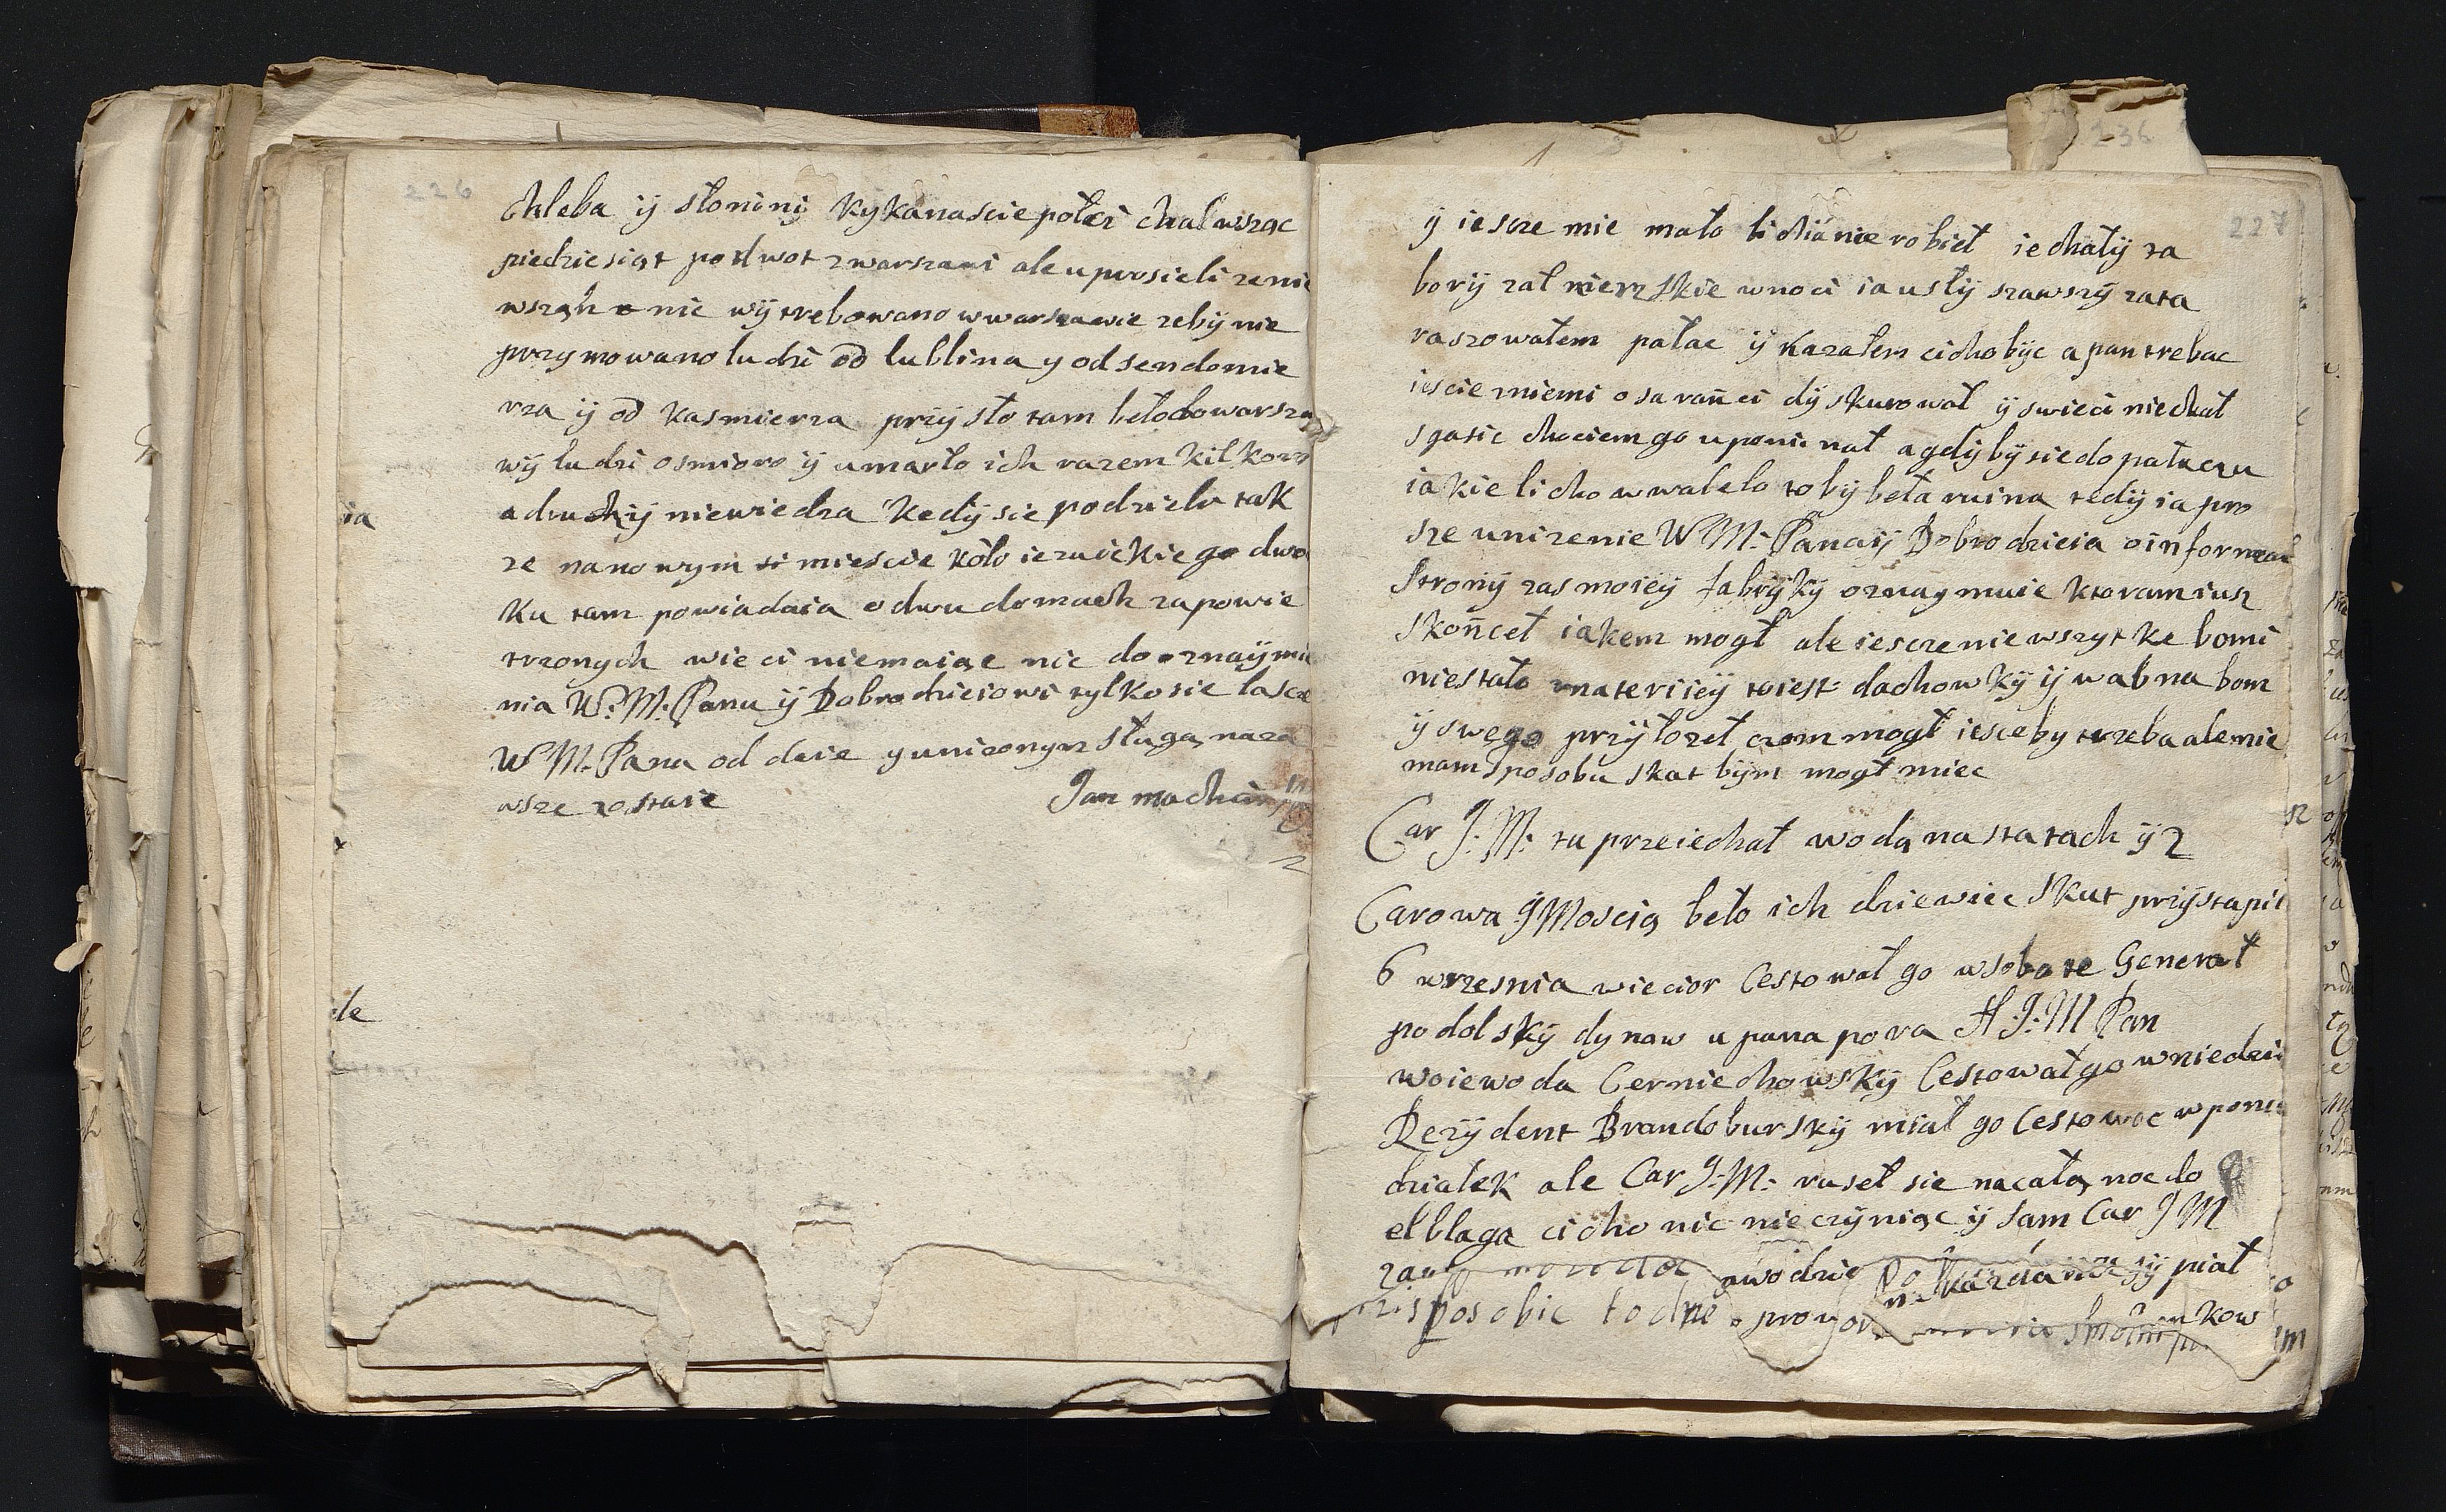 226
chleba ij słonini kykanascie połci chał wszac
piedziesiąt podwot zwarszawi ale uprosieli ze nie
wszak o nic wÿtrebowano wwarszawie zebÿ nie
przymowano ludzi od lublina y od sendomie
rza ij od kasmierza przÿsło tam beło do warsza
wÿ ludzi osmioro ij umarło ich razem kilkoro
a druchÿ niewiedza kedÿ sie podzieli tak
ze nanowym miescie koło iezuickiego dwor
ku tam powiadaia o dwu domach zapowie
trzonych wie ci niemaiąc nic do oznaÿmie
nia W: M: Panu ÿ Dobrodzieiowi tylko sie lasce
W M. Pana od daie y unizonym sługa naza
wsze zostaie
Jan machcin
ia
de
236
227
ÿ iescze mie mało licha nie robieł iechałÿ ta
borÿ żołnierzskie wnoci ia usłÿ szawszÿ zata
raszowałem pałac ÿ kazałem cicho bÿc a pan trebac
iescie zniemi o sarańci dÿskurował ÿ swieci niechał
sgasic chociem go uponinał a gdÿbÿ sie do pałaczu
iakie licho wwaleło to bÿ beła ruina tedÿ ia pro
sze unizenie W M: Pana ij Dobrodzieia o informac
Stronÿ zas moieÿ fabrÿkÿ oznaymuie ktoram iusz
skońceł iakem mogł ale iescze nie wszytke bo mi
niestało materiieÿ toiest dachowkÿ ij wabna bom
ÿ swego przÿłozeł czem mogł iesce by trzeba ale nie
mam sposobu skat bÿm mogł miec
Car J: M: tu przeiechał wodą na statach ÿ z
Carowa JMoscią beło ich dziewiec skut przÿstapił
6 wrzesnia wiecior Cestował go wsobote Generał
podolskÿ dy naw u pana pora A J: M Pan
woiewoda Cerniechowskÿ Cestował go wniedzi
Rezÿdent Brandoburskÿ miał go Cestowac wponie
działek ale Car J: M: ruseł sie nacałą noc do
elblaga cicho nic nie czÿniąc ÿ sam Car J M
wodzie nakazda ÿ piał
sposobic łodzie
kow